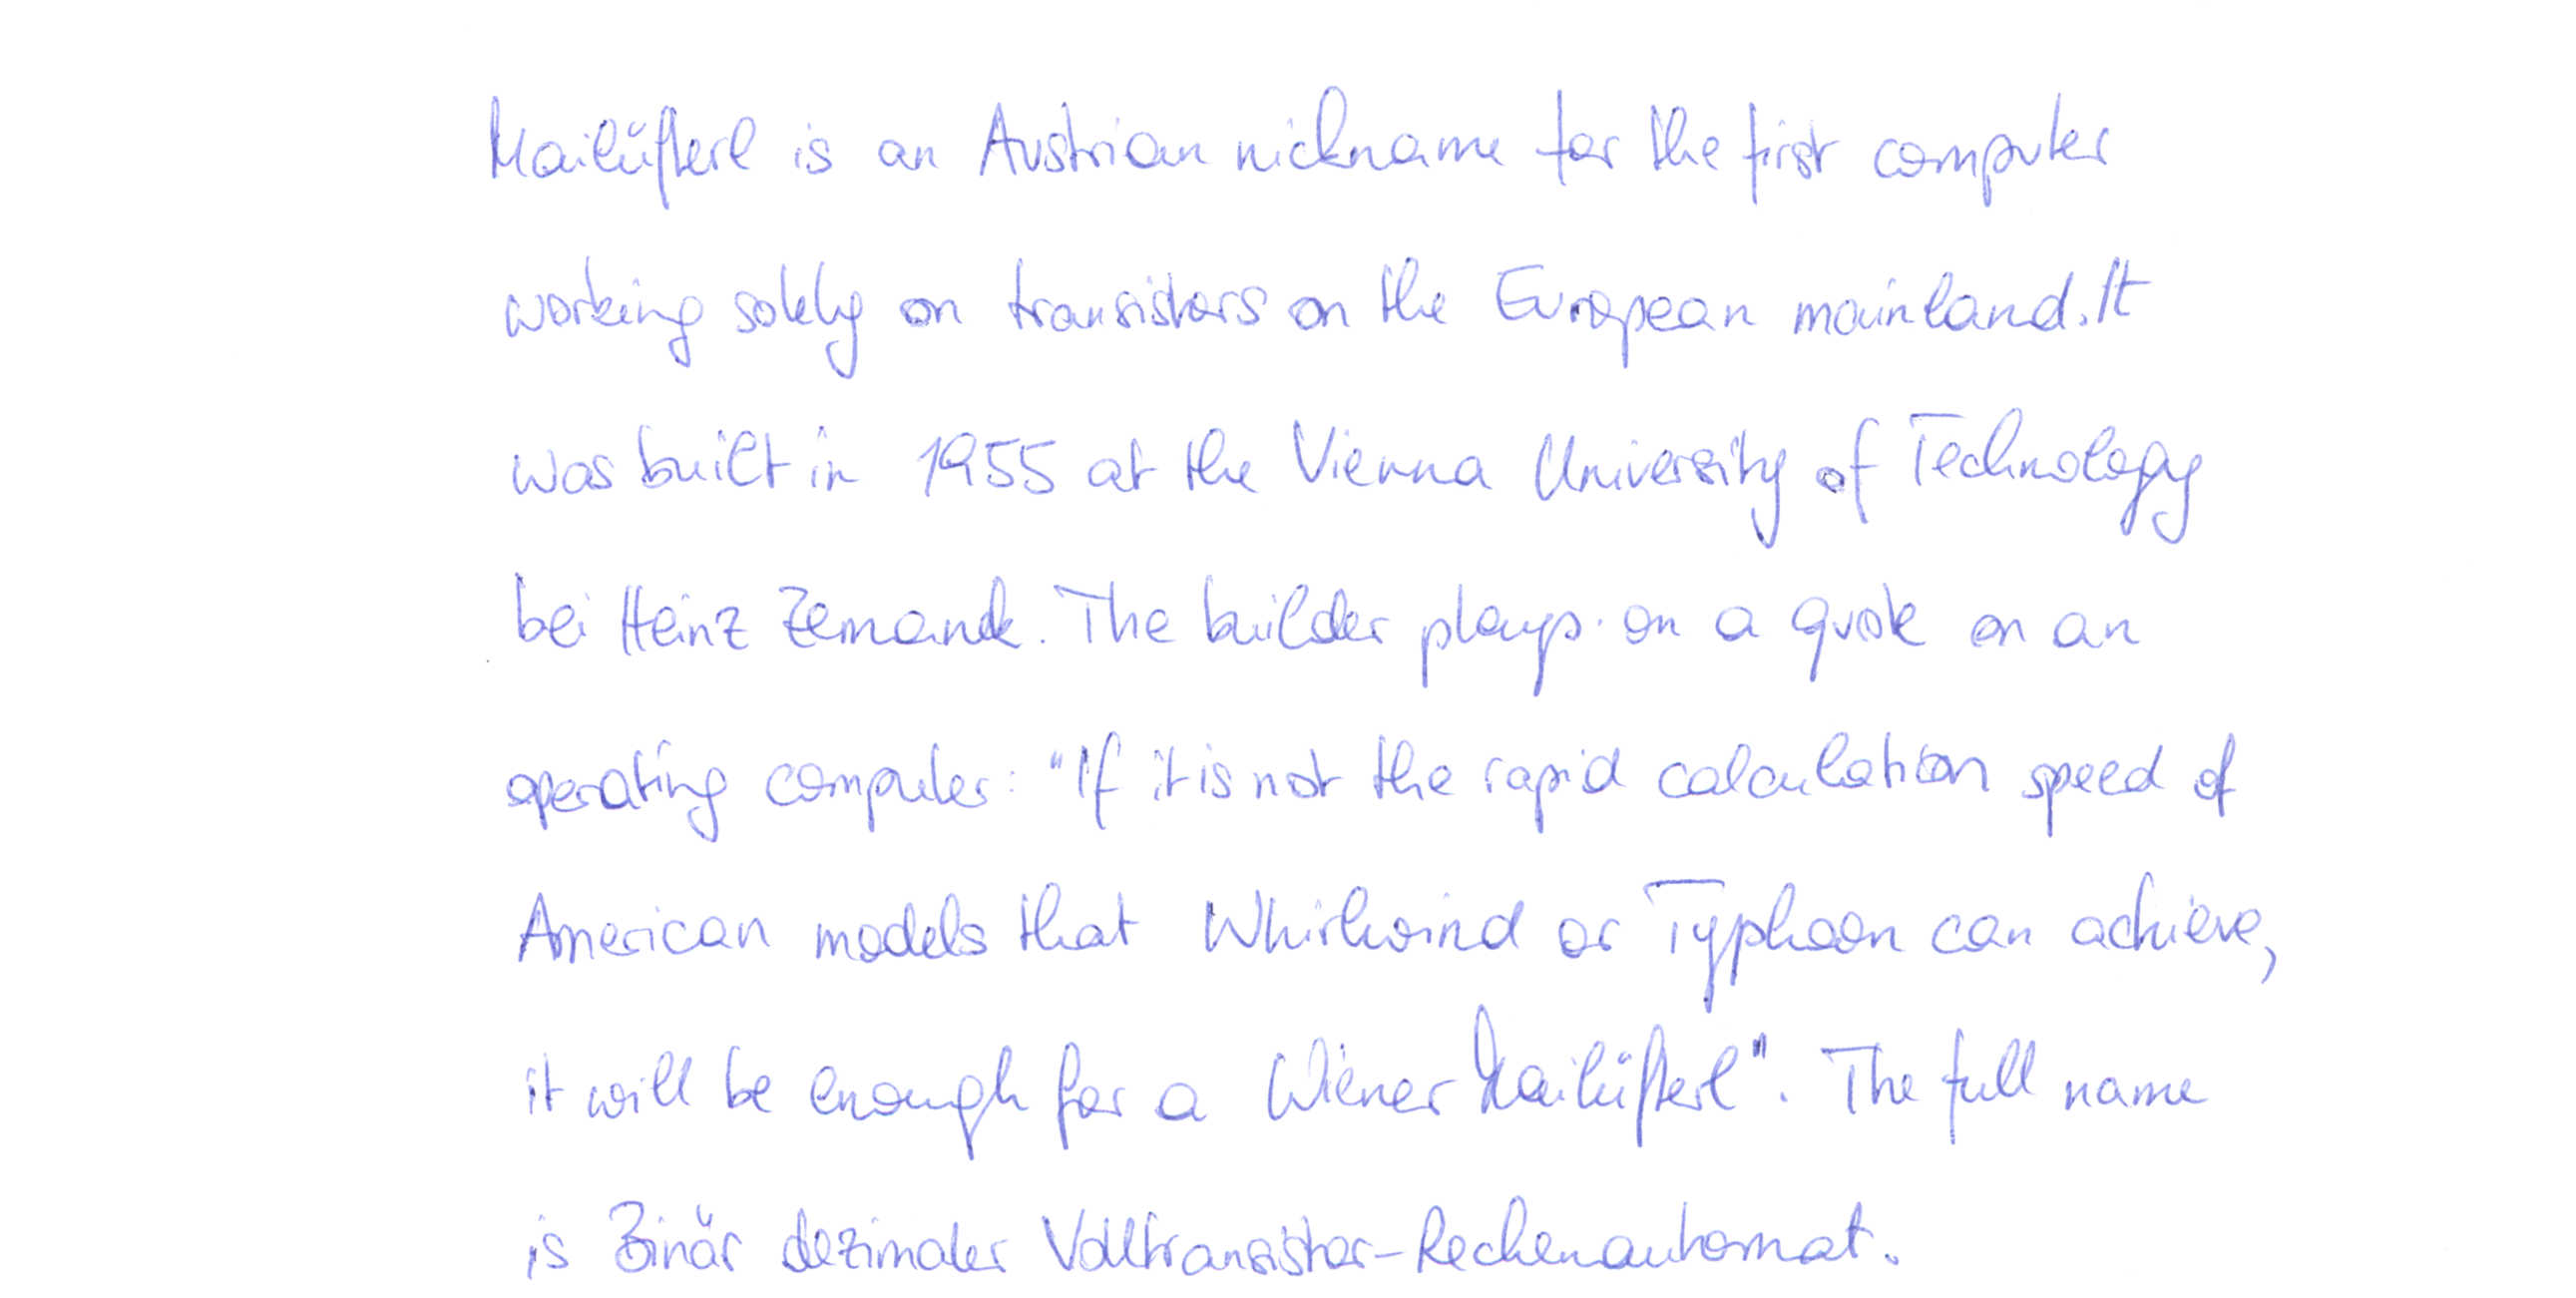 Mailüfterl is an Austrian nickname for the first computer
working solely on transistors on the European mainland. It
was built in 1955 at the Vienna University of Technology
bei Heinz Zemanek. The builder plays on a quote on an
operating computer: "If it is not the rapid calculation speed of
American models that Whirlwind or Typhoon can achieve,
it will be enough for a Wiener Mailüfterl". The full name
is Binär dezimaler Volltransistor-Rechenautomat.